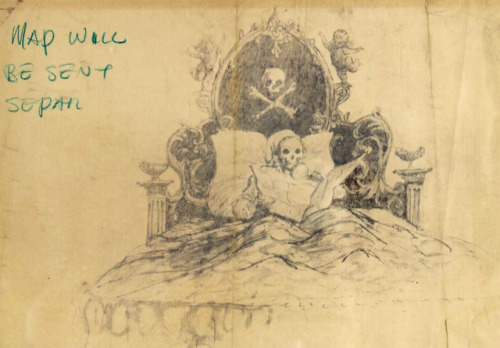 MAP WILL
BE SENT
SEPAR